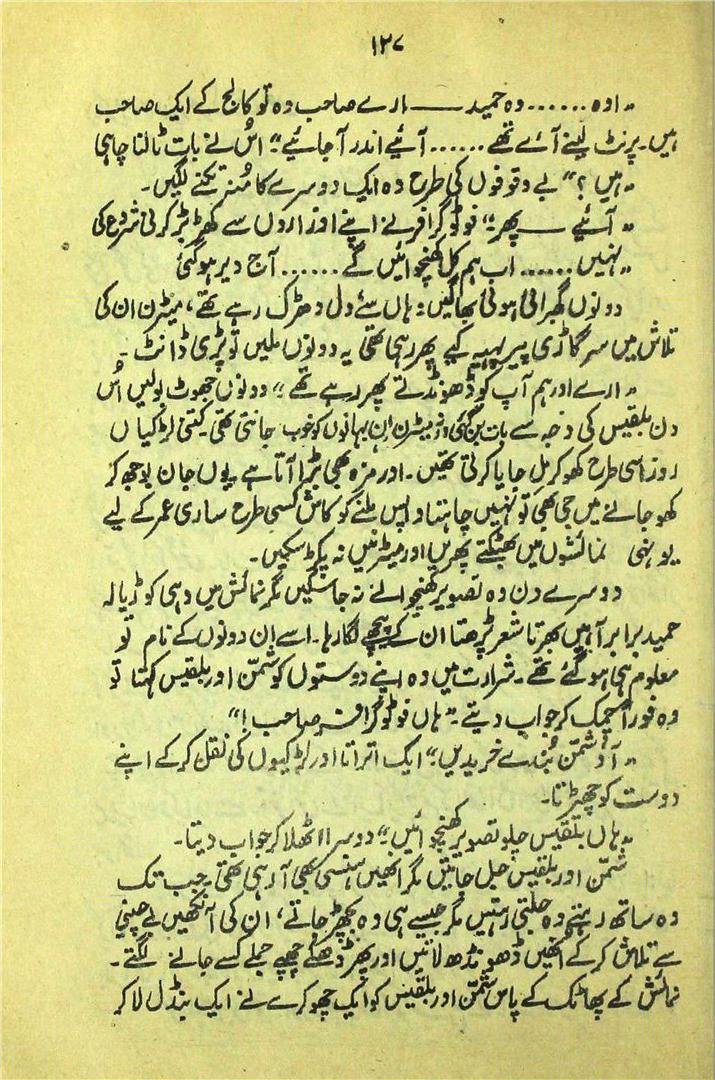 ۱۲۷
"اوہ...... وہ حمید ــــ ارے صاحب وہ تو کالج کے ایک صاحب
ہیں۔ پرنٹ لینے آئے تھے...... آئیے اندر آجائیے" اس نے بات ٹالنا چاہی
"ہیں؟" بے وقوفوں کی طرح وہ ایک دوسرے کا منہ تکنے لگیں۔
"آئیے ــــ پھر" فوٹوگرافر نے اپنے اوزاروں سے کھڑبڑ کرنی شروع کی
"نہیں...... اب ہم کل کھنچوائیں گے...... آج دیر ہوگئی
دونوں گھبرائی ہوئی بھاگیں؛ ہاں سے دل دھڑک رہے تھے، میٹرن ان کی
تلاش میں سرگاڑی پیر پہیہ کیے پھر رہی تھی یہ دونوں ملیں تو پڑی ڈانٹ۔
"ارے اور ہم آپ کو ڈھونڈتے پھر رہے تھے" دونوں جھوٹ بولیں اس
دن بلقیس کی وجہ سے بات بن گئی ورنہ میٹرن ان بہانوں کو خوب جانتی تھی۔ کتنی لڑکیاں
روز اسی طرح کھو کر مل جایا کرتی تھیں۔ اور مزہ بھی بڑا آتا ہے یوں جان بوجھ کر
کھو جانے میں جی بھی تو نہیں چاہتا واپس ملنے کو کاش کسی طرح ساری عمر کے لیے
یوہنی نمائشوں میں بھٹکتے پھریں اور میٹرنیں نہ پکڑ سکیں۔
دوسرے دن وہ تصویر کھنچوانے نہ جاسکیں مگر نمائش میں وہی کوڑیالہ
حمید برابر آہیں بھرتا شعر پڑھتا ان کے پیچھے لگا رہا۔ اسے ان دونوں کے نام تو
معلوم ہی ہوگئے تھے۔ شرارت میں وہ اپنے دوستوں کو شمن اور بلقیس کہتا تو
وہ فوراً چمک کر جواب دیتے۔ "ہاں فوٹوگرافر صاحب!"
"آؤ شمن بُندے خریدیں" ایک اتراتا اور لڑکیوں کی نقل کرکے اپنے
دوست کو چھیڑتا۔
"ہاں بلقیس چلو تصویر کھنچوائیں" دوسرا اٹھلا کر جواب دیتا۔
شمن اور بلقیس جل جاتیں مگر انھیں ہنسی بھی آرہی تھی۔ جب تک
وہ ساتھ رہتے وہ جلتی رہتیں مگر جیسے ہی وہ بچھڑ جاتے، ان کی آنکھیں بے چینی
سے تلاش کرکے انھیں ڈھونڈھ لاتیں اور پھر ڈھکے چھپے جملے کسے جانے لگتے۔
نمائش کے پھاٹک کے پاس شمن اور بلقیس کو ایک چھوکرے نے ایک بنڈل لا کر